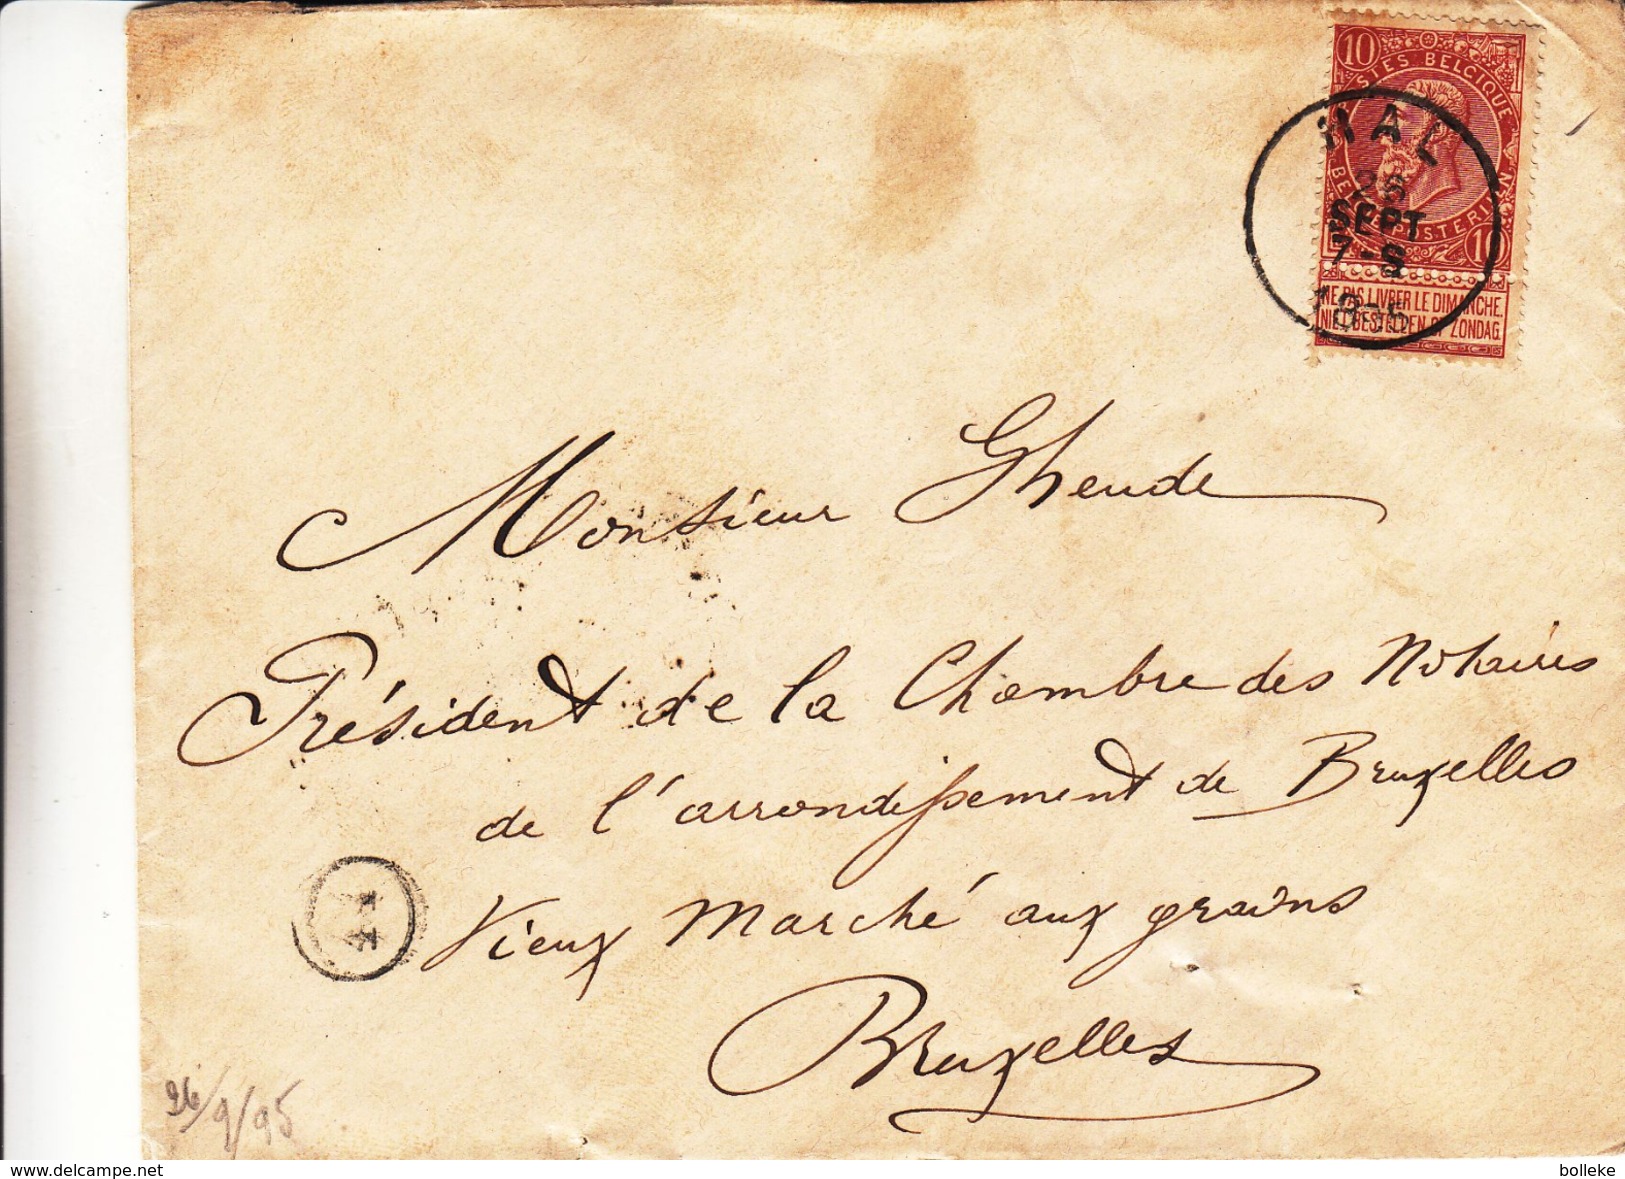 10
POSTES BELGIQUE
BELGIE POSTERIJEN
10
HAL
26
SEPT
7-S
1895
NE PAS LIVRER LE DIMANCHE.
NIET BESTELLEN OP ZONDAG.
Monsieur Gheude
Président de la Chambre des Notaires
de l'arrondissement de Bruxelles
Vieux Marché aux grains
Bruxelles
26/9/95
www.delcampe.net
bolleke